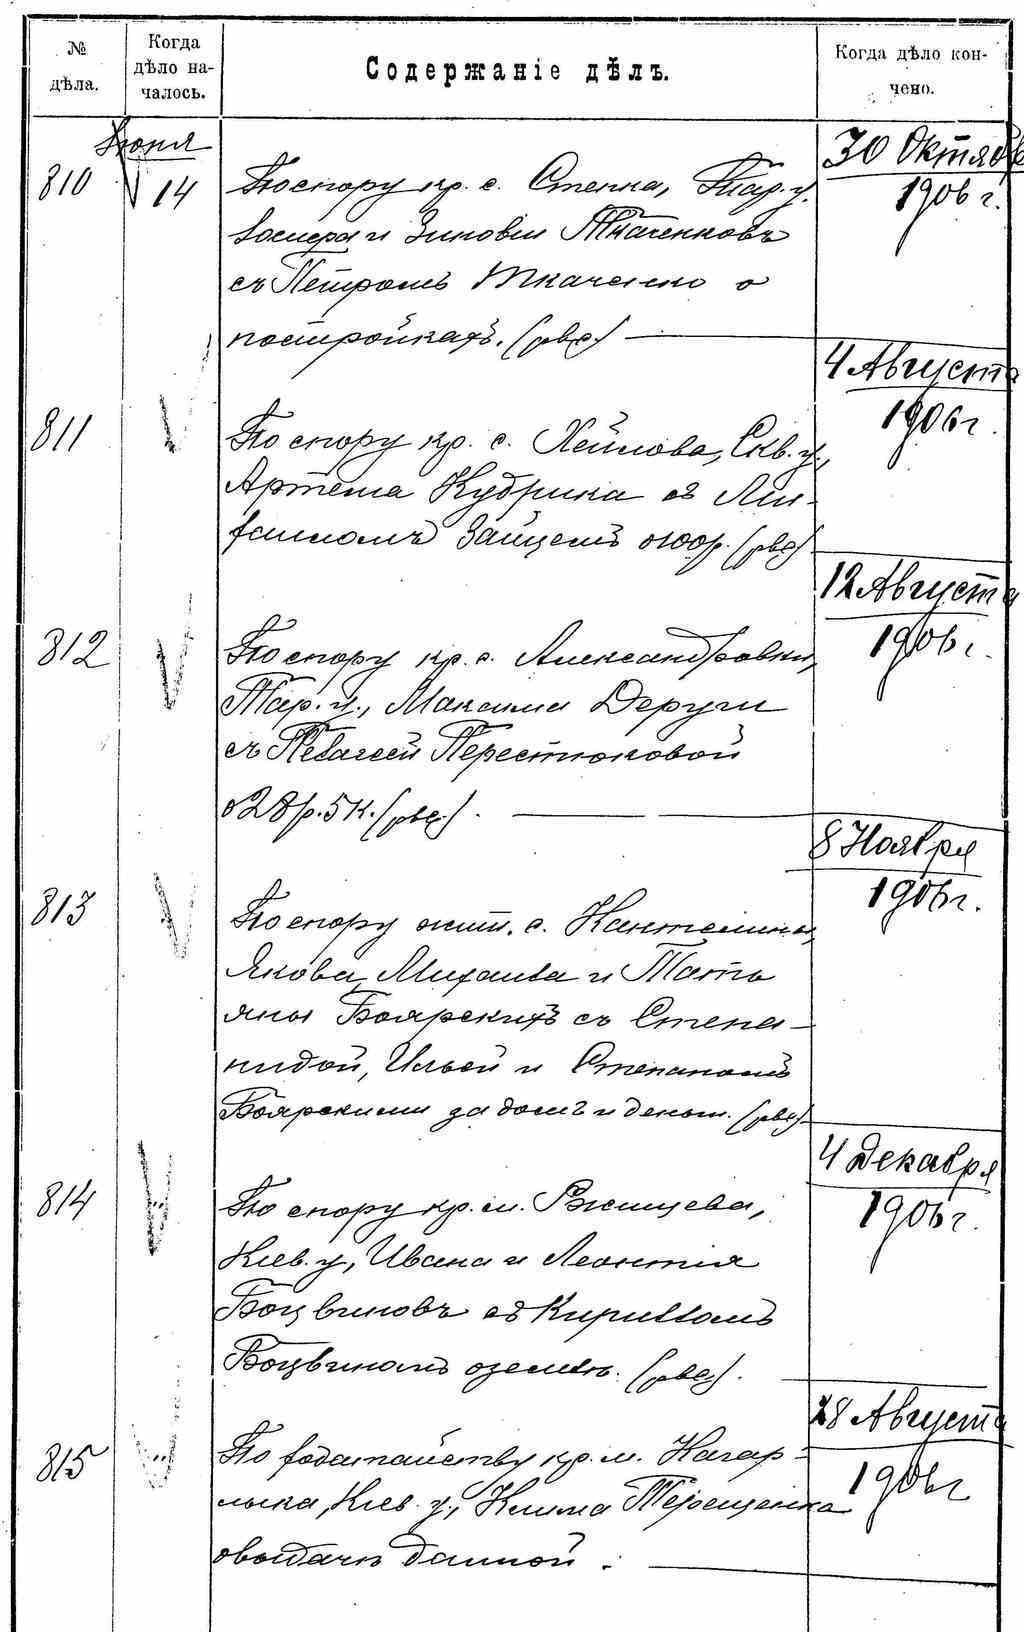 № дѣла.
Когда дѣло на-
чалось.
Содержаніе дѣлъ.
Когда дѣло кон-
чено.
Июня
810 14 По спору кр. с. Степка, Тар. у.
и Зиновіи Ткаченковъ
съ Петромъ Ткаченко о
постройкахъ. (рвд)
30 Октября
1906 г.
811 По спору кр. с. Хейлова, Скв. у.,
Артема Кудрика съ
Зайцемъ (рвд)
4 Августа
1906 г.
812 По спору кр. с. Александровки,
Тар. у., Максима Деруги
съ Пелагеей Перестюковой
о 28 р. 5 к. (рвд).
12 Августа
1906 г.
813 По спору жит. с. Кантелина,
Якова, Михаила и Тать
яны Боярскихъ съ Степа-
нидой, Ильей и Степаномъ
Боярскими за домъ и деньги. (рвд)
8 Ноября
1906 г.
814 По спору кр. м. Ржищева,
Кіев. у., Ивана и Леонтія
Боцвиновъ съ Кирилломъ
Боцвиномъ о землѣ. (рвд).
4 Декабря
1906 г.
815 По ходатайству кр. м. Кагар-
лыка, Кіев. у., Клима Терещенка
о выдачѣ данной.
28 Августа
1906 г